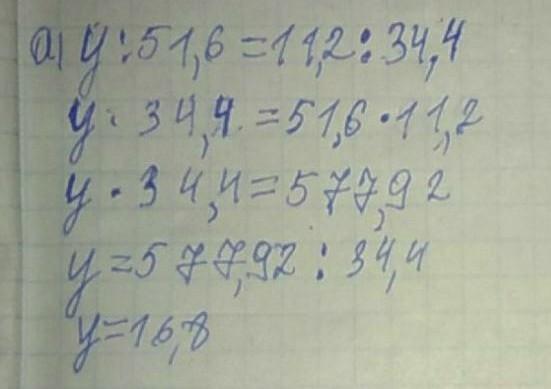 а) у:51,6=11,2:34,4
у · 34,4=51,6·11,2
у · 34,4=577,92
у=577,92 : 34,4
у=16,8